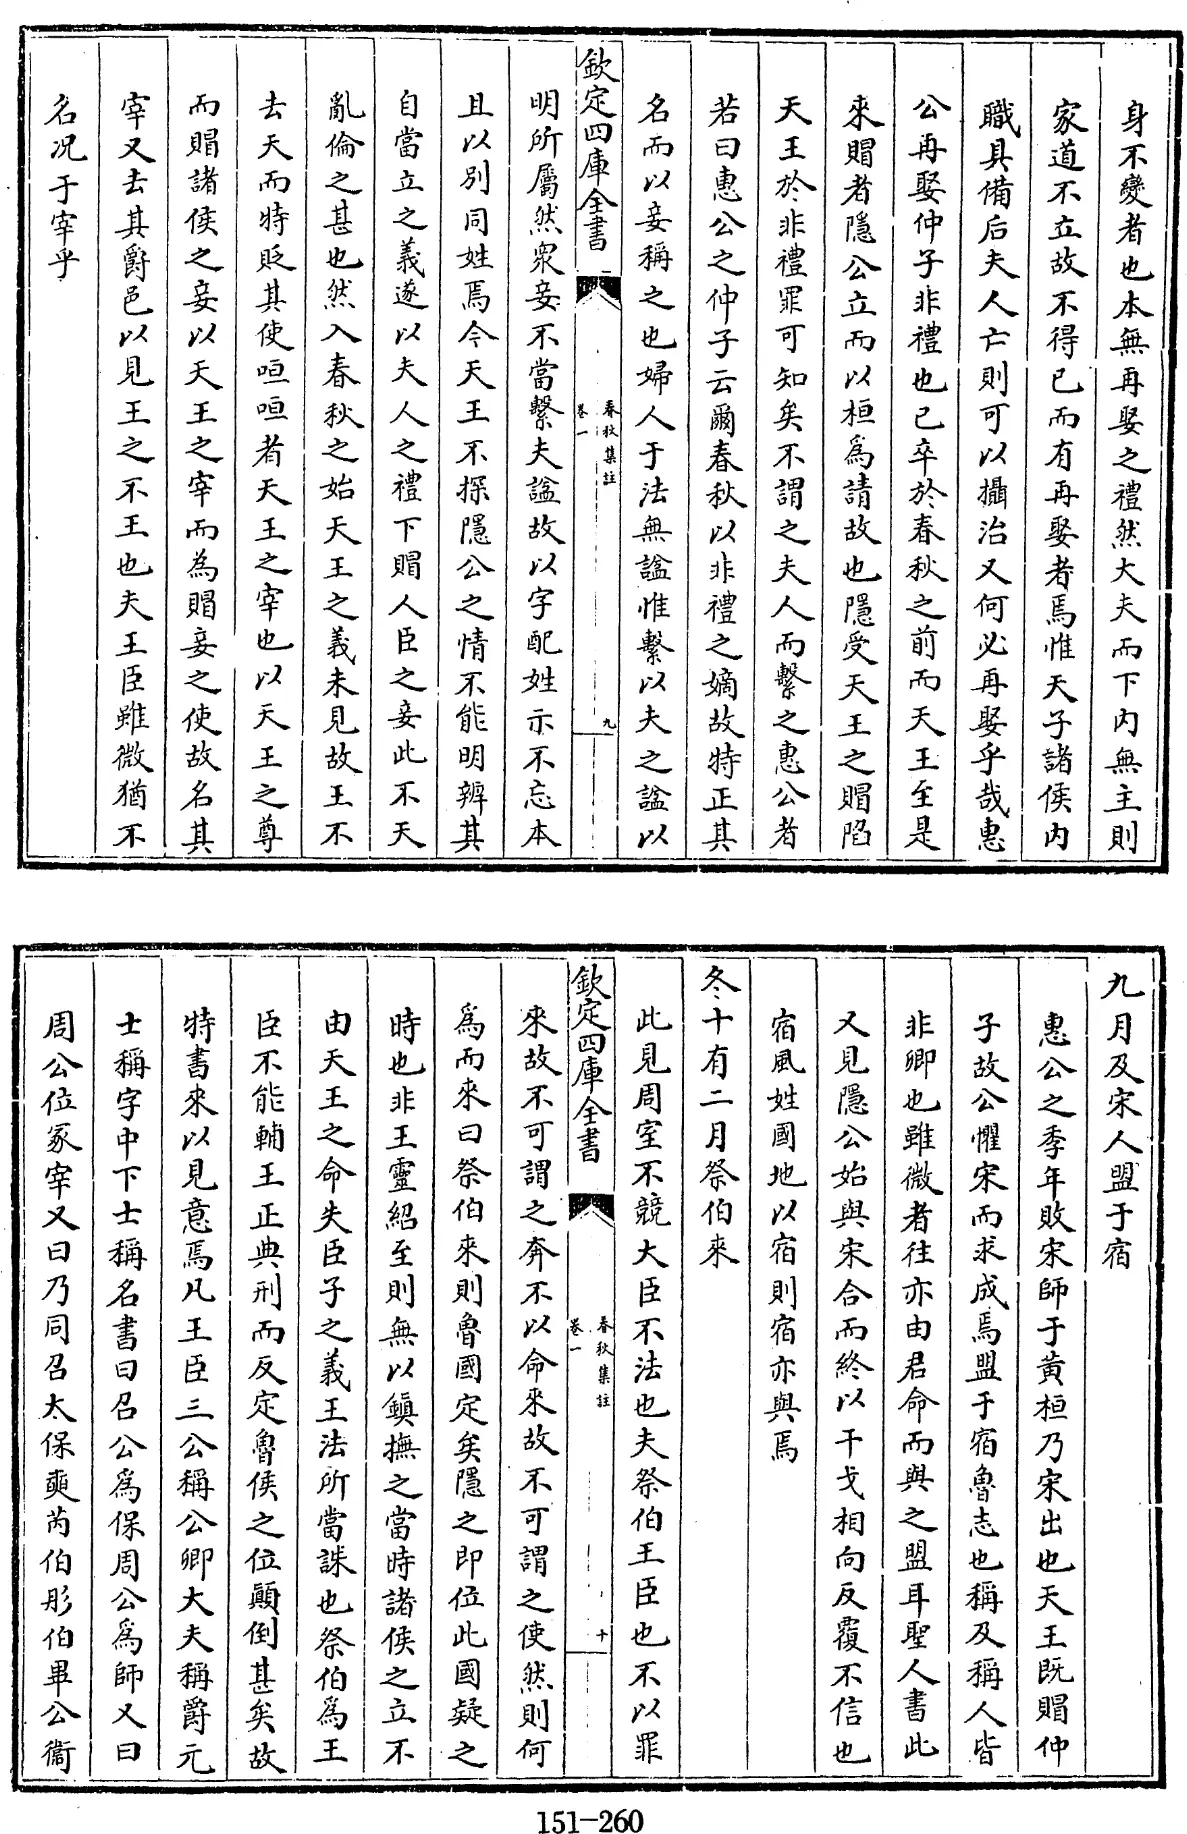 身不變者也本無再娶之禮然大夫而下内無主則
家道不立故不得已而有再娶者焉惟天子諸侯内
職具備后夫人亡則可以攝治又何必再娶乎哉惠
公再娶仲子非禮也已卒於春秋之前而天王至是
來賵者隱公立而以桓為請故也隱受天王之賵陷
天王於非禮罪可知矣不謂之夫人而繫之惠公者
若曰惠公之仲子云爾春秋以非禮之嫡故特正其
名而以妾稱之也婦人于法無諡惟繫以夫之諡以
欽定四庫全書
春秋集註
卷一
九
明所屬然衆妾不當繫夫諡故以字配姓示不忘本
且以别同姓焉今天王不探隱公之情不能明辨其
自當立之義遂以夫人之禮下賵人臣之妾此不天
亂倫之甚也然入春秋之始天王之義未見故王不
去天而特貶其使咺咺者天王之宰也以天王之尊
而賵諸侯之妾以天王之宰而為賵妾之使故名其
宰又去其爵邑以見王之不王也夫王臣雖微猶不
名况于宰乎
九月及宋人盟于宿
惠公之季年敗宋師于黄桓乃宋出也天王既賵仲
子故公懼宋而求成焉盟于宿魯志也稱及稱人皆
非卿也雖微者往亦由君命而與之盟耳聖人書此
又見隱公始與宋合而終以干戈相向反覆不信也
宿風姓國地以宿則宿亦與焉
冬十有二月祭伯來
此見周室不競大臣不法也夫祭伯王臣也不以罪
欽定四庫全書
春秋集註
卷一
十
來故不可謂之奔不以命來故不可謂之使然則何
為而來曰祭伯來則魯國定矣隱之即位此國疑之
時也非王靈紹至則無以鎮撫之當時諸侯之立不
由天王之命失臣子之義王法所當誅也祭伯為王
臣不能輔王正典刑而反定魯侯之位顛倒甚矣故
特書來以見意焉凡王臣三公稱公卿大夫稱爵元
士稱字中下士稱名書曰召公為保周公為師又曰
周公位冢宰又曰乃同召太保奭芮伯彤伯畢公衞
151-260